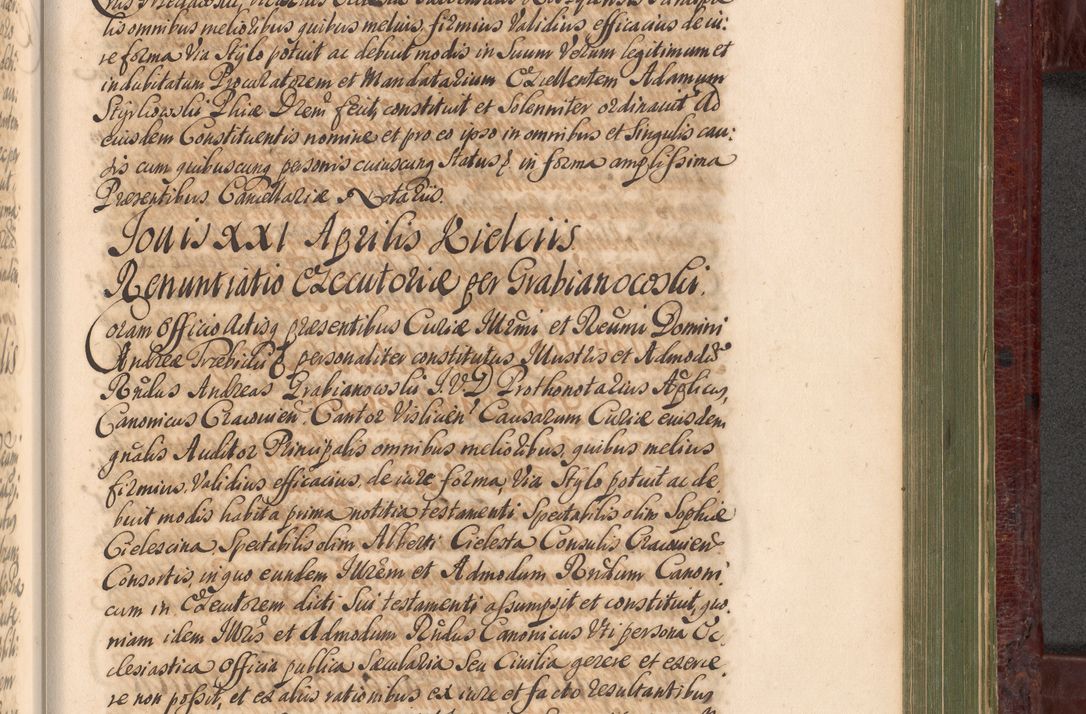 lis omnibus melioribus quibus melius, firmius validius, efficacius de iu:
re forma via stylo potuit ac debuit modis in suum verum legitimum et
indubitatum Procuratorem et Mandatarium Excellentem Adamum
fecit, constituit et solenniter ordinavit Ad
eiusdem Constituentis nomine et pro eo ipso in omnibus et singulis cau:
sis cum quibuscunq personis cuiuscunq status & in forma amplissima
Præsentibus Cancellariæ Notariis.
Jovis XXI Aprilis Kielciis
Renuntiatio Executoriæ per Grabianowski.
Coram Officio Actisq præsentibus Curiæ Illrmi et Reumi Domini
Andreæ Trzebicki & personaliter constitutus Illustris et Admodũ
Rndus Andreas Grabianowski J.V.D. Prothonotarius Aplicus,
Canonicus Cracovien. Cantor Vislicien. Causarum Curiæ eiusdem
gnalis Auditor Principalis omnibus melioribus, quibus melius
firmius, validius efficacius, de iure forma, via stylo potuit ac de
buit modis habita prima notitia testamenti Spectabilis olim Sophiæ
Cielescina Spectabilis olim Alberti Cielesta Consulis Cracovien
Consortis, in quo eundem Illrem et Admodum Rndum Canoni
cum in Executorem dicti sui testamenti assumpsit et constituit, quo
niam idem Illris et Admodum Rndus Canonicus Uti persona Ec
clesiastica Officia publica Sæcularia Seu Civilia gerere et exerce
re non possit, et ex aliis rationibus ex iure et facto resultantibus